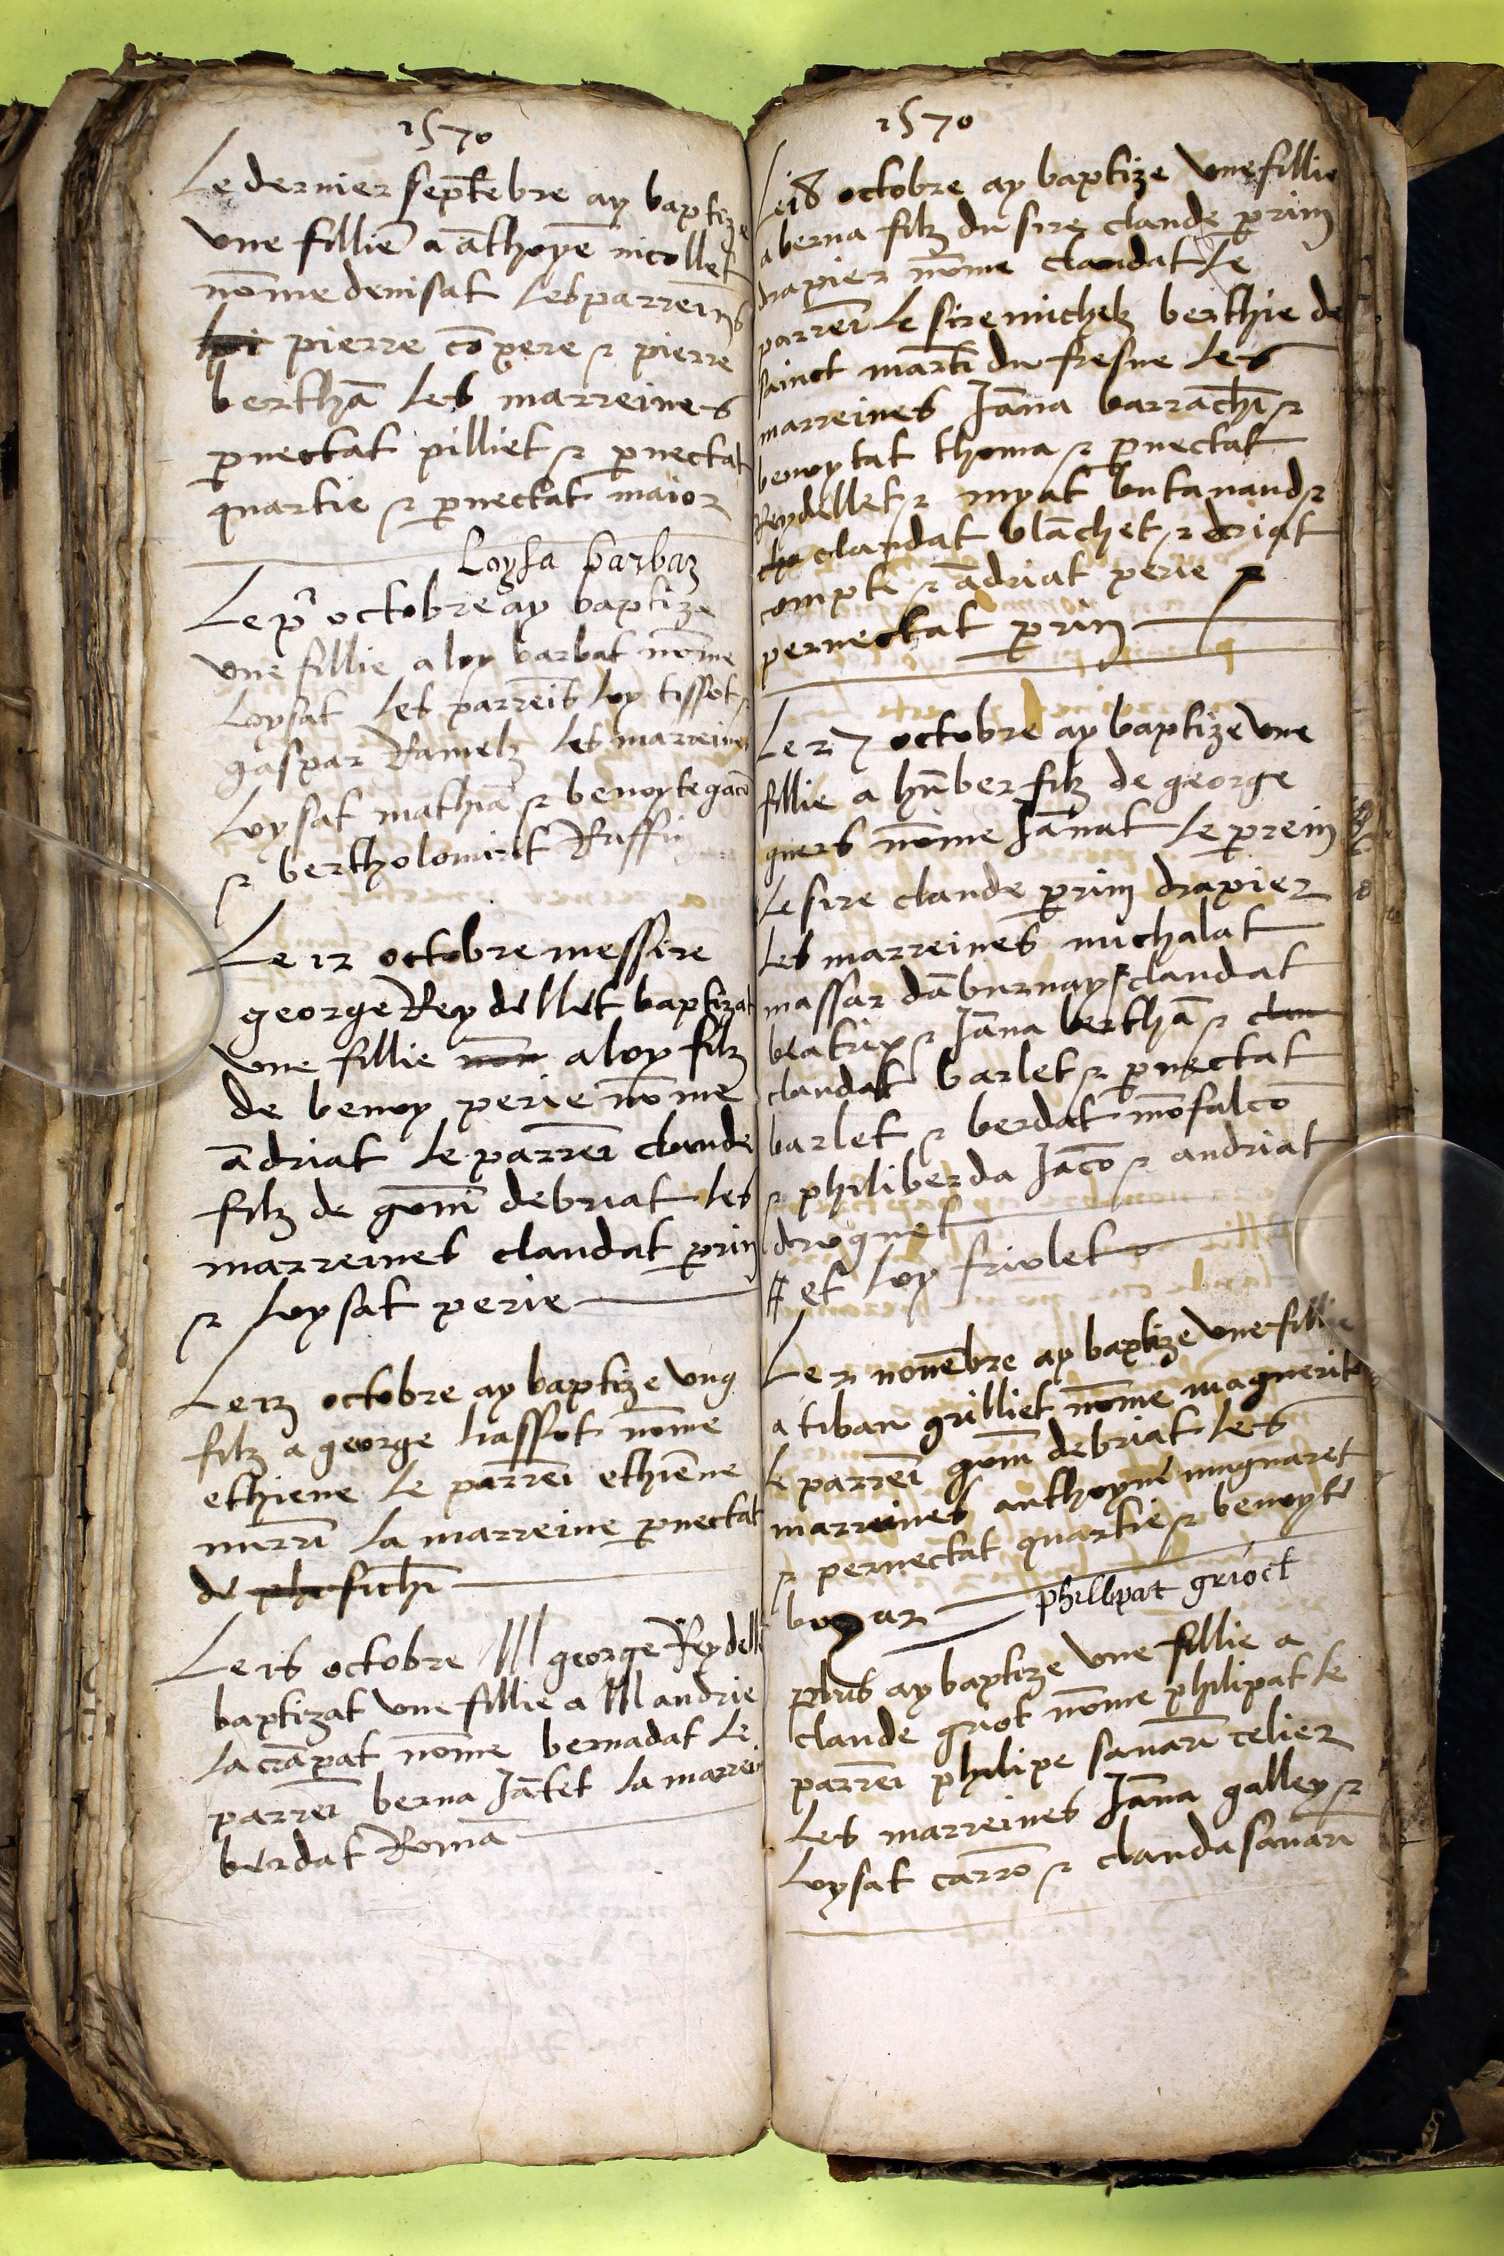 1570
Le dernier septēbre ay baptize
une fillie a āthoyne nicollet
nōme denisat les parreins
pierre cōpere et pierre
berthā les marreines
pernectat pilliet et pernectat
quartie et pernectat maior
Loysa barbaz
Le pr octobre ay baptize
une fillie a loy barbat nōme
loysat les parreis loy tissot et
gaspar Ramelz les marreines
loysat mathiā et benoyte
et bertholomiat Ruffi
Le 12 octobre messire
george Reydellet baptizat
une fillie nōn a loy filz
de benoy perie nōme
ādriat le parrei claude
filz de debriat les
marreines claudat perrin
et loysat perie
Le 13 octobre ay baptize ung
filz a george liassot nōme
ethiene le parrei ethiēne
la marreine pernectat
de
Le 16 octobre M george Reydell
baptizat une fillie a M andrie
la crāpat nōme bernadat le
parrei berna Jātet la marrei
berdat Romā
1570
Le 18 octobre ay baptize une fillie
a berna filz du sire claude perrin
drapier nōme claudat le
parrei le sire michelz berthie de
sainct marti du fresne les
marreines Jāna barrachi et
benoytat thoma et pernectat
Reydellet et myat butavand et
claudat blāchet et driat
compte et ādriat perie et
pernectat perrin
Le 27 octobre ay baptize une
fillie a hūber filz de george
guers nōme Jānat le perrein
le sire claude perrin drapier
les marreines michalat
massar dāburnay et claudat
beatrix et Jāna berthā et clau
claudat barlet et pernectat
barlet et berdat mōfalcō
et philiberda Jacō et andriat
droguet
et loy friolet
Le 2 novēbre ay baptize une fillie
a tiban grilliet nōme marguerite
le parrei debriat les
marreines anthoyne mugnaret
et pernectat quartie et benoyte
bozar
philippat grioct
ay baptize une fillie a
claude griot nōme philipat le
parrei philipe savari celier
les marreines Jāna galley et
loysat carrō et clauda savari